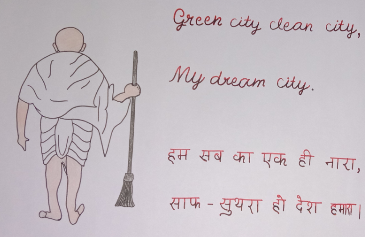 Green city clean city,
My dream city.
हम सब का एक ही नारा,
साफ - सुथरा हो देश हमारा।